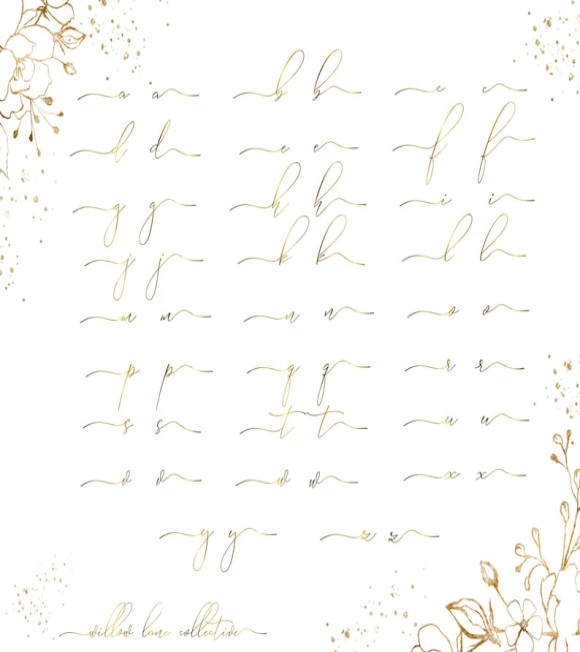 a a b b c c
d d e e f f
g g h h i i
j j k k l l
m m n n o o
p p q q r r
s s t t u u
v v w w x x
y y z z
willow lane collective